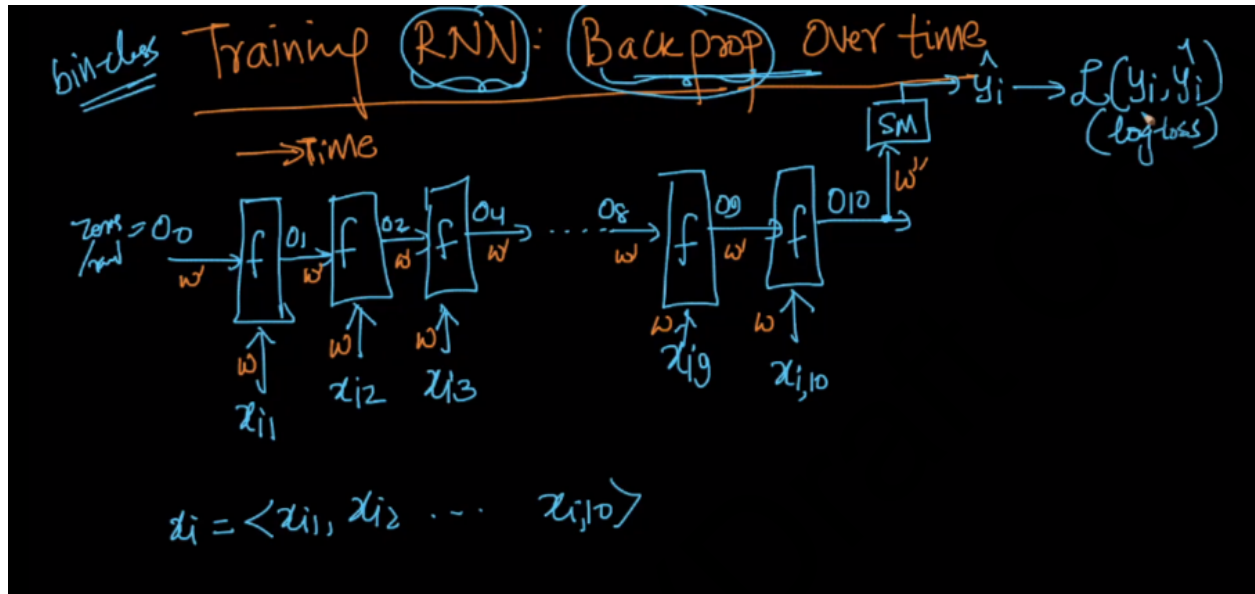 bin-class Training RNN: Backprop Over time
ŷi → L(yi, ŷi)
SM (log-loss)
→ Time w''
zeros /rand = O0 w' f O1 w' f O2 w' f O4 w' ...... O8 w' f O9 w' f O10
w w w w w
xi1 xi2 xi3 xi9 xi,10
xi = <xi1, xi2 ... xi,10>